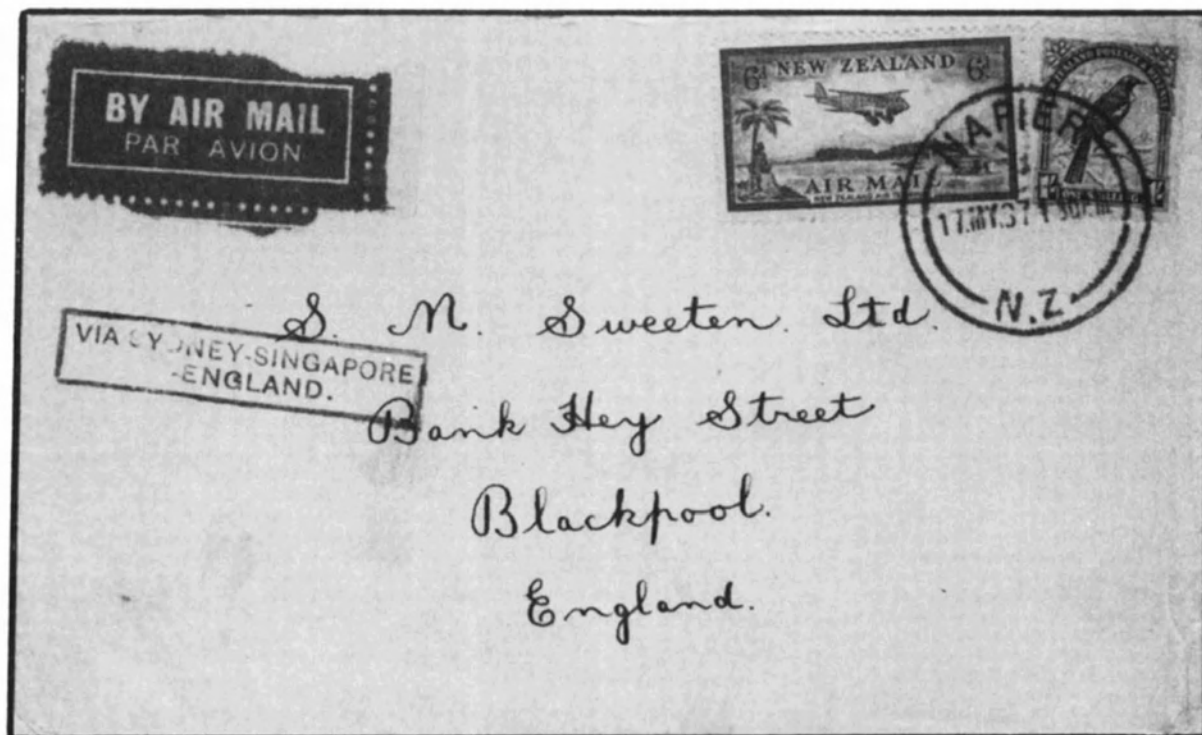 BY AIR MAIL
PAR AVION
6d NEW ZEALAND 6d
AIR MAIL
NAPIER
17.MY.37
N.Z
VIA SYDNEY-SINGAPORE
-ENGLAND.
S. M. Sweeten. Ltd.
Bank Hey Street
Blackpool.
England.